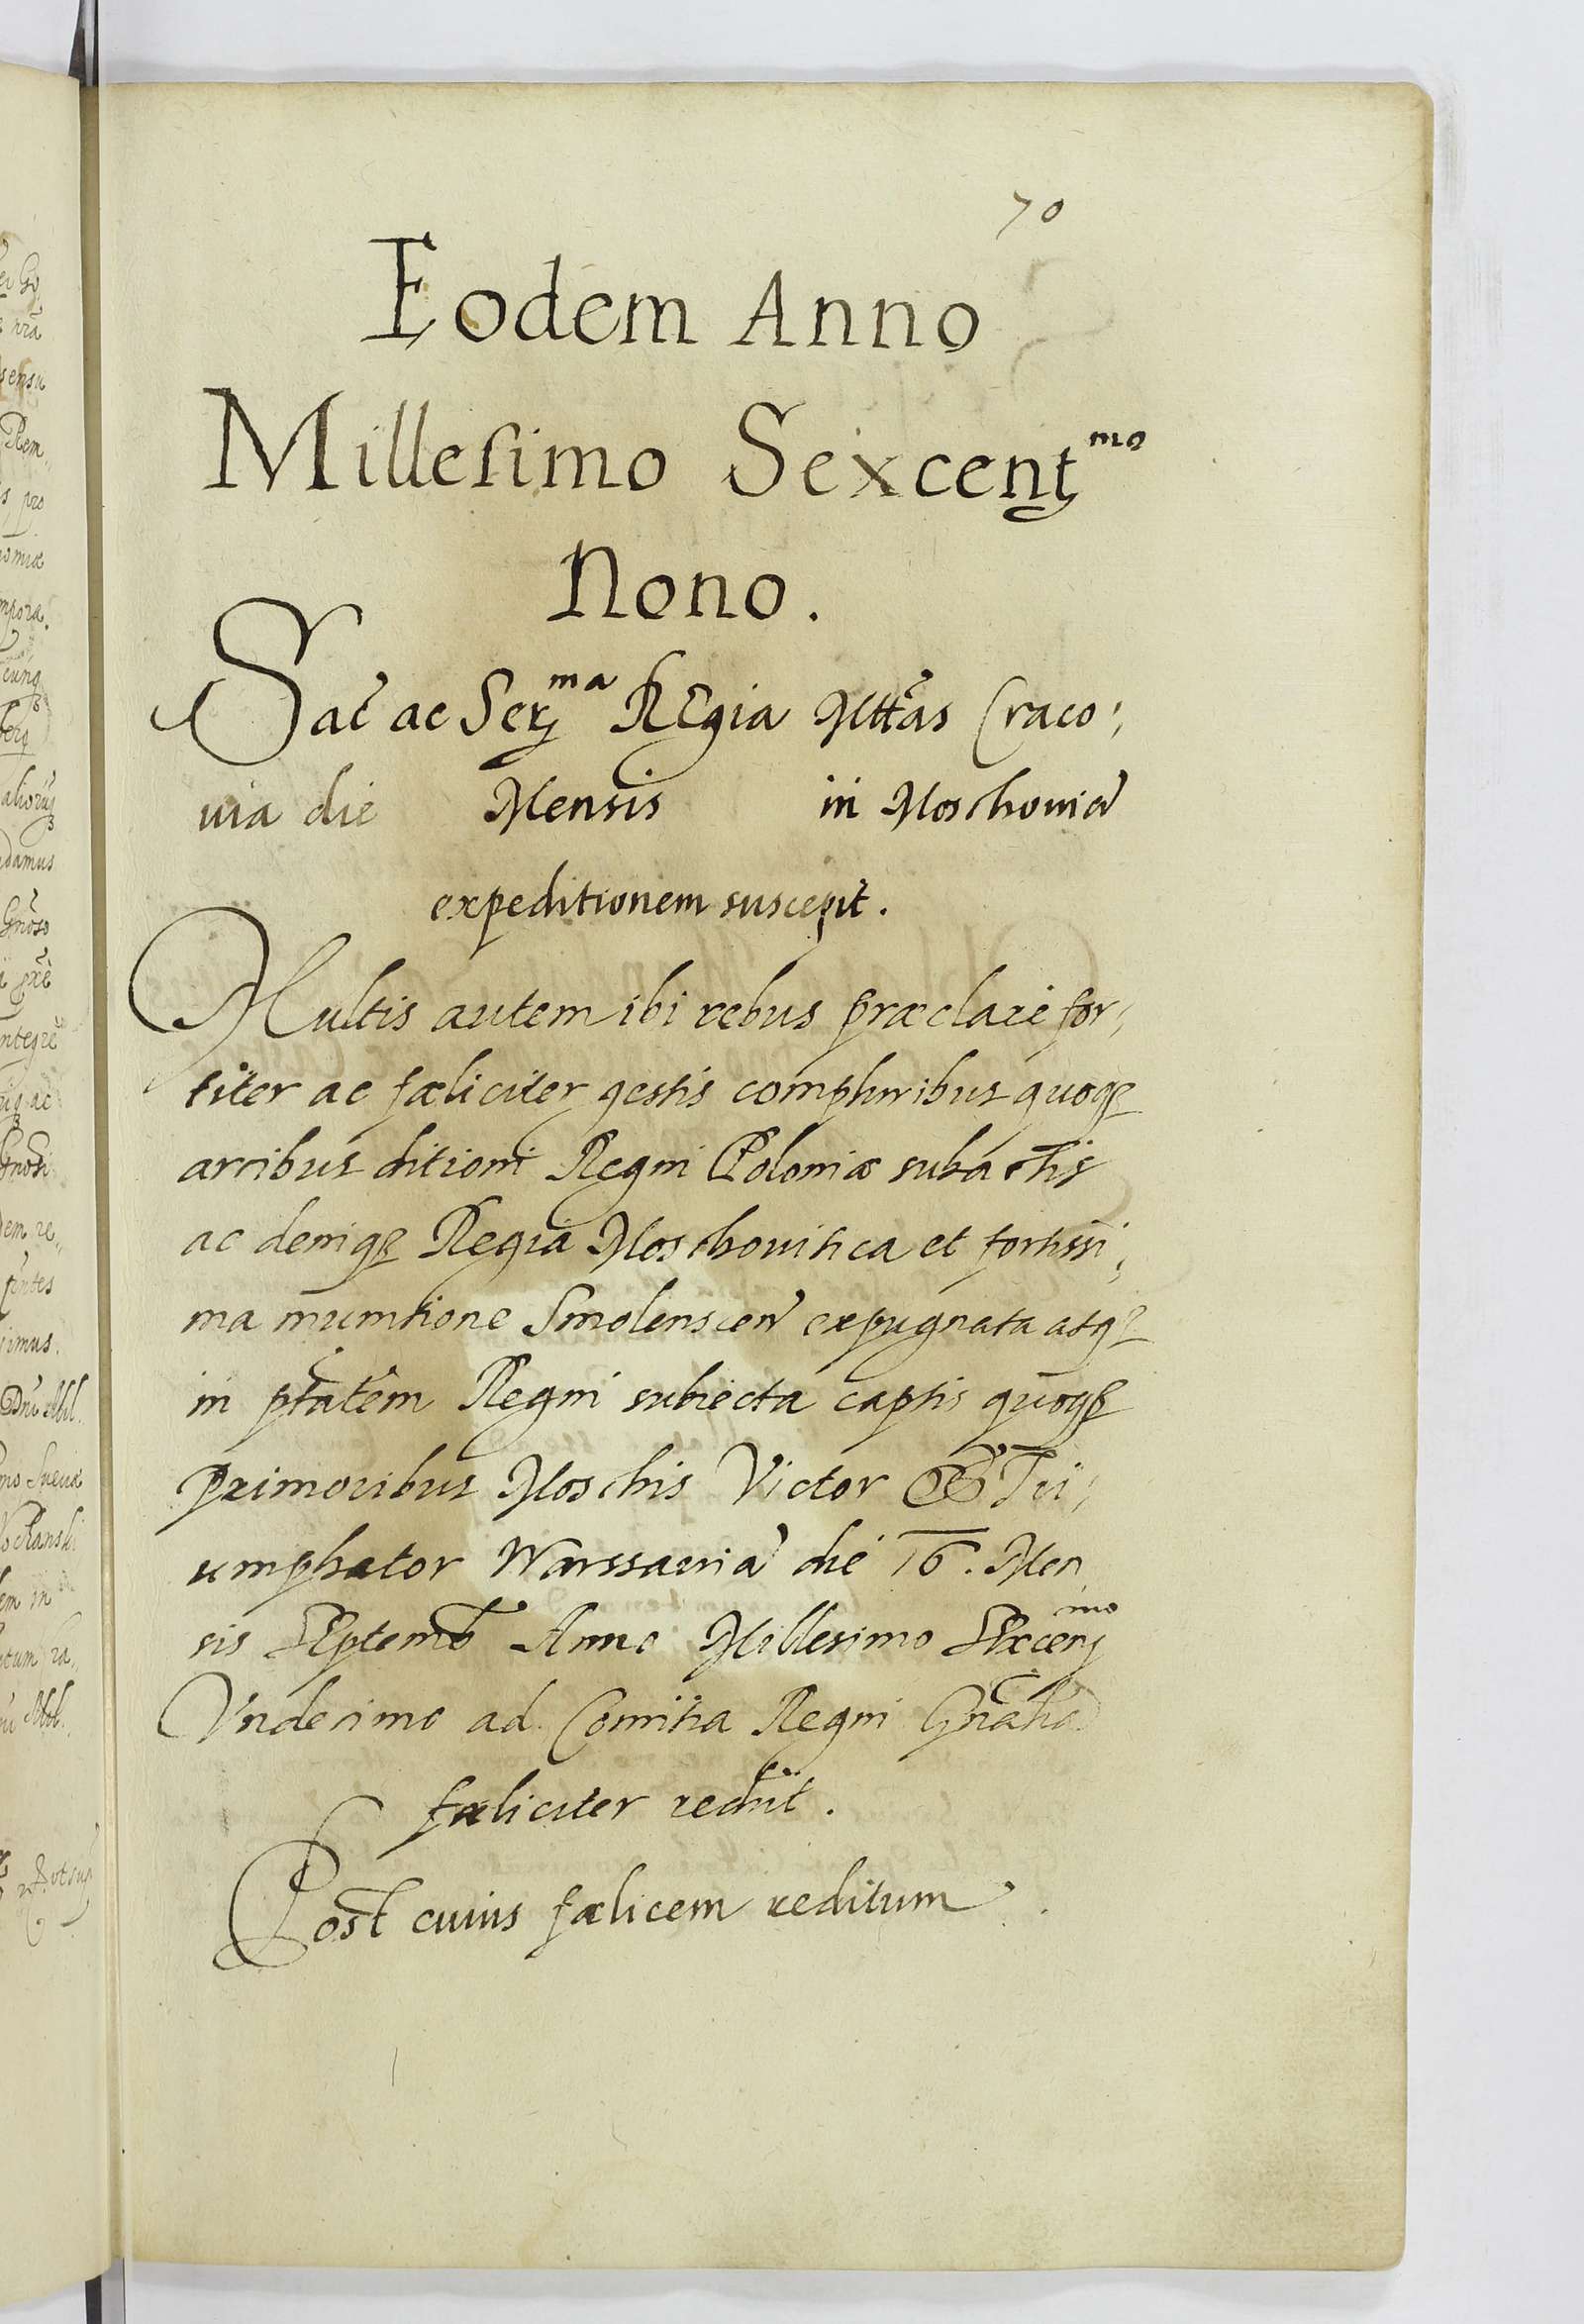 70
Eodem Anno
Millesimo Sexcent^mo
Nono.
Sac ac Ser^ma REgia Mttas Craco,
uia die Mensis in Moschouia
expeditionem suscepit.
Multis autem ibi rebus præclare for,
titer ac fæliciter gestis compluribus quoq
arcibus ditioni Regni Poloniæ subactis
ac deniq Regia Moschouitica et fortissi,
ma munitione Smolenscen expugnata atq
in ptatem Regni subiecta captis quoq
primoribus Moschis Victor & Tri,
umphator Warssauia die 16. Men
sis SEptemb Anno Millesimo SExcen^mo
Vndecimo ad Comitia Regni Gnalia
fæliciter rediit.
Post cuius fælicem reditum